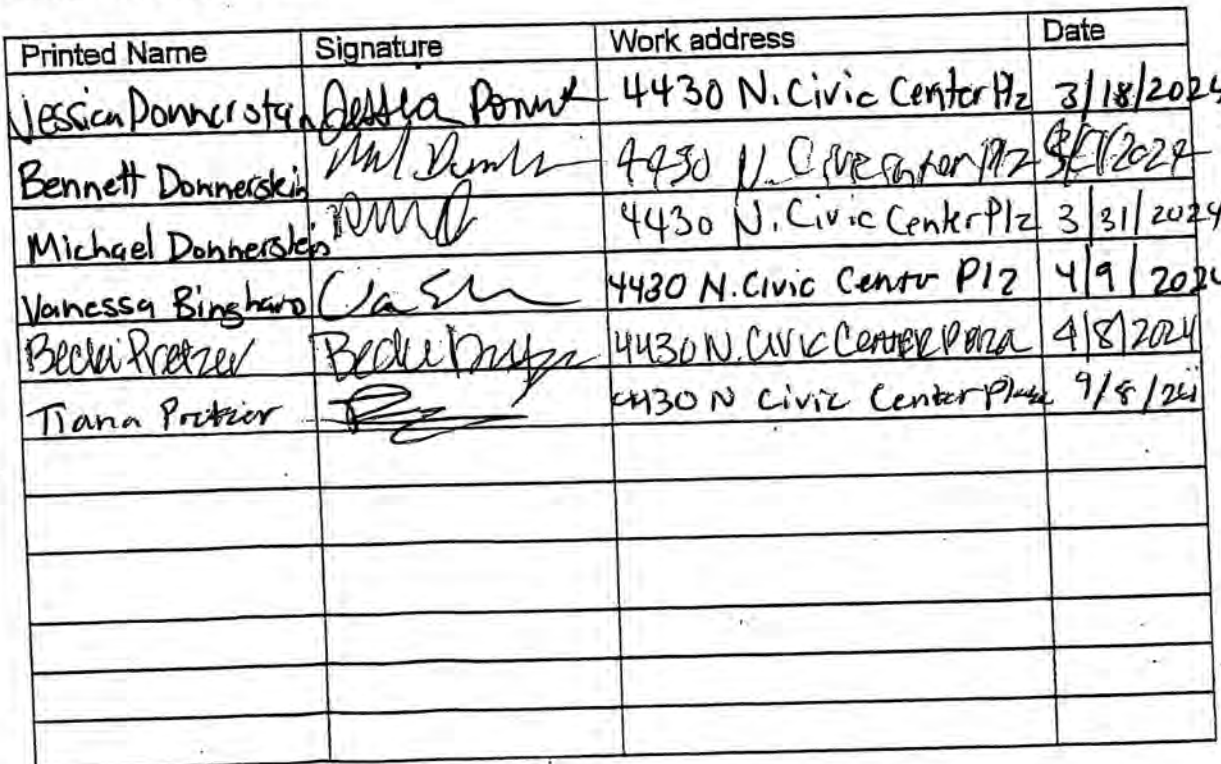 Printed Name Signature Work address Date
Jessica Donnerstein 4430 N. Civic Center Plz 3/18/2024
Bennett Donnerstein 4430 N. Civic Center Plz 2024
Michael Donnerstein 4430 N. Civic Center Plz 3/31/2024
Vanessa Bingham 4430 N. Civic Center Plz 4/9/2024
Becki Pretzer Becki 4430 N. Civic Center Plaza 4/8/2024
Tiana 4430 N Civic Center Plaza